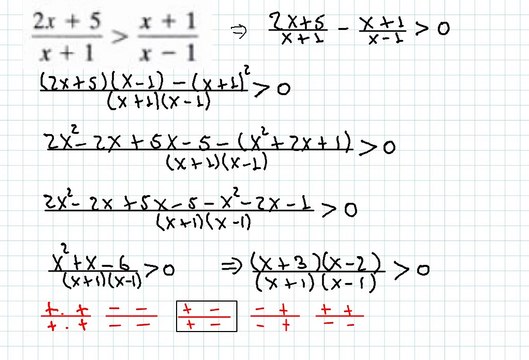 (2x + 5)/(x + 1) > (x + 1)/(x − 1) ⇒ (2x+5)/(x+1) − (x+1)/(x−1) > 0
((2x+5)(x−1) − (x+1)²)/((x+1)(x−1)) > 0
(2x² − 2x + 5x − 5 − (x² + 2x + 1))/((x+1)(x−1)) > 0
(2x² − 2x + 5x − 5 − x² − 2x − 1)/((x+1)(x−1)) > 0
(x² + x − 6)/((x+1)(x−1)) > 0 ⇒ ((x+3)(x−2))/((x+1)(x−1)) > 0
(+ · +)/(+ · +) (− −)/(− −) (+ −)/(+ −) (− +)/(− +) (+ +)/(− −)